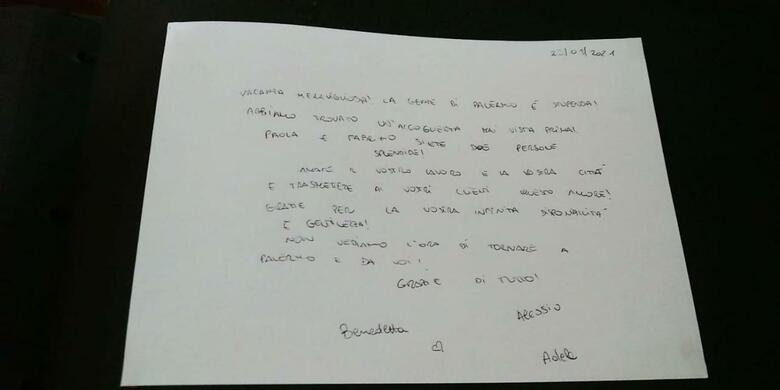 22/07/2021
VACANZA MERAVIGLIOSA! LA GENTE DI PALERMO È STUPENDA!
ABBIAMO TROVATO UN'ACCOGLIENZA MAI VISTA PRIMA!
PAOLA E FABRIZIO SIETE DUE PERSONE
SPLENDIDE!
AMATE IL VOSTRO LAVORO E LA VOSTRA CITTÀ
E TRASMETTETE AI VOSTRI CLIENTI QUESTO AMORE!
GRAZIE PER LA VOSTRA INFINITA DISPONIBILITÀ
E GENTILEZZA!
NON VEDIAMO L'ORA DI TORNARE A
PALERMO E DA VOI!
GRAZIE DI TUTTO!
Benedetta
ALESSIO
Adele